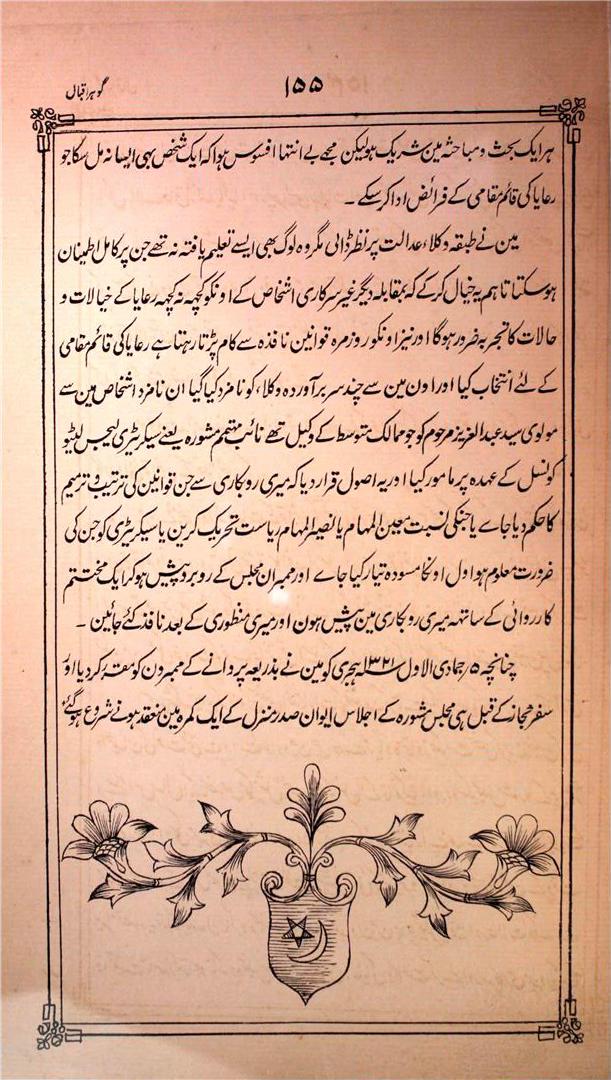 گوہر اقبال
۱۵۵
ہر ایک بحث و مباحثہ مین شریک ہو لیکن مجھے بے انتہا افسوس ہوا کہ ایک شخص بھی ایسا نہ مل سکا جو
رعایا کی قائم مقامی کے فرائض ادا کر سکے ۔
مین نے طبقہ وکلاء عدالت پر نظر ڈالی مگر وہ لوگ بھی ایسے تعلیم یافتہ نہ تھے جن پر کامل اطمینان
ہو سکتا تاہم یہ خیال کر کے کہ بمقابلہ دیگر غیر سرکاری اشخاص کے اونکو کچہہ نہ کچہہ رعایا کے خیالات و
حالات کا تجربہ ضرور ہوگا اور نیز اونکو روزمرہ قوانین نافذہ سے کام پڑتا رہتا ہے رعایا کی قائم مقامی
کے لئے انتخاب کیا اور اون مین سے چند سربرآوردہ وکلاء کو نامزد کیا گیا ان نامزد اشخاص مین سے
مولوی سید عبدالعزیز مرحوم کو جو ممالک متوسط کے وکیل تھے نائب مہتمم مشورہ یعنے سیکریٹری لیجس لیٹیو
کونسل کے عہدہ پر مامور کیا اور یہ اصول قرار دیا کہ میری روبکاری سے جن قوانین کی ترتیب و ترمیم
کا حکم دیا جاے یا جنکی نسبت معین المہام یا نصیر المہام ریاست تحریک کرین یا سیکریٹری کو جن کی
ضرورت معلوم ہو اول اونکا مسودہ تیار کیا جاے اور ممبران مجلس کے روبرو پیش ہو کر ایک مختتم
کارروائی کے ساتھہ میری روبکاری مین پیش ہون اور میری منظوری کے بعد نافذ کئے جائین ۔
چنانچہ ۵ ر جمادی الاول ۱۳۲۱ ہجری کو مین نے بذریعہ پروانے کے ممبرون کو مقرر کر دیا اور
سفر حجاز کے قبل ہی مجلس مشورہ کے اجلاس ایوان صدر منزل کے ایک کمرہ مین منعقد ہونے شروع ہو گئے